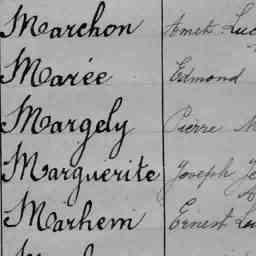 Marchon Amet Luc
Marée Edmond
Margely Pierre M
Marguerite Joseph Je
Marhem Ernest Lou